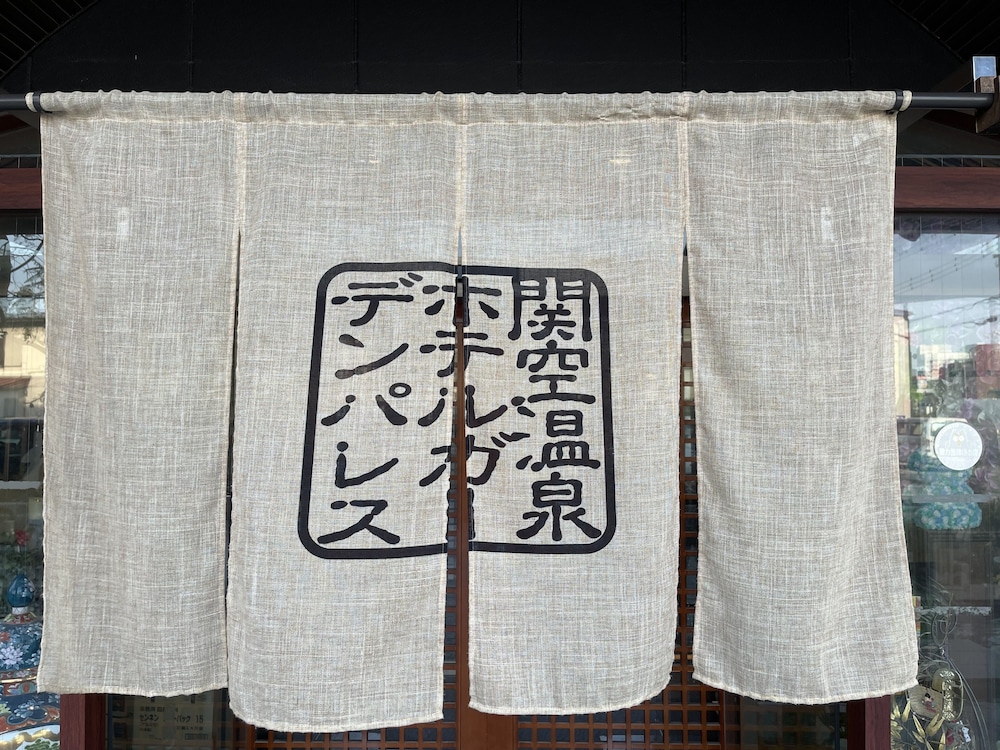 関空温泉
ホテルガー
デンパレス